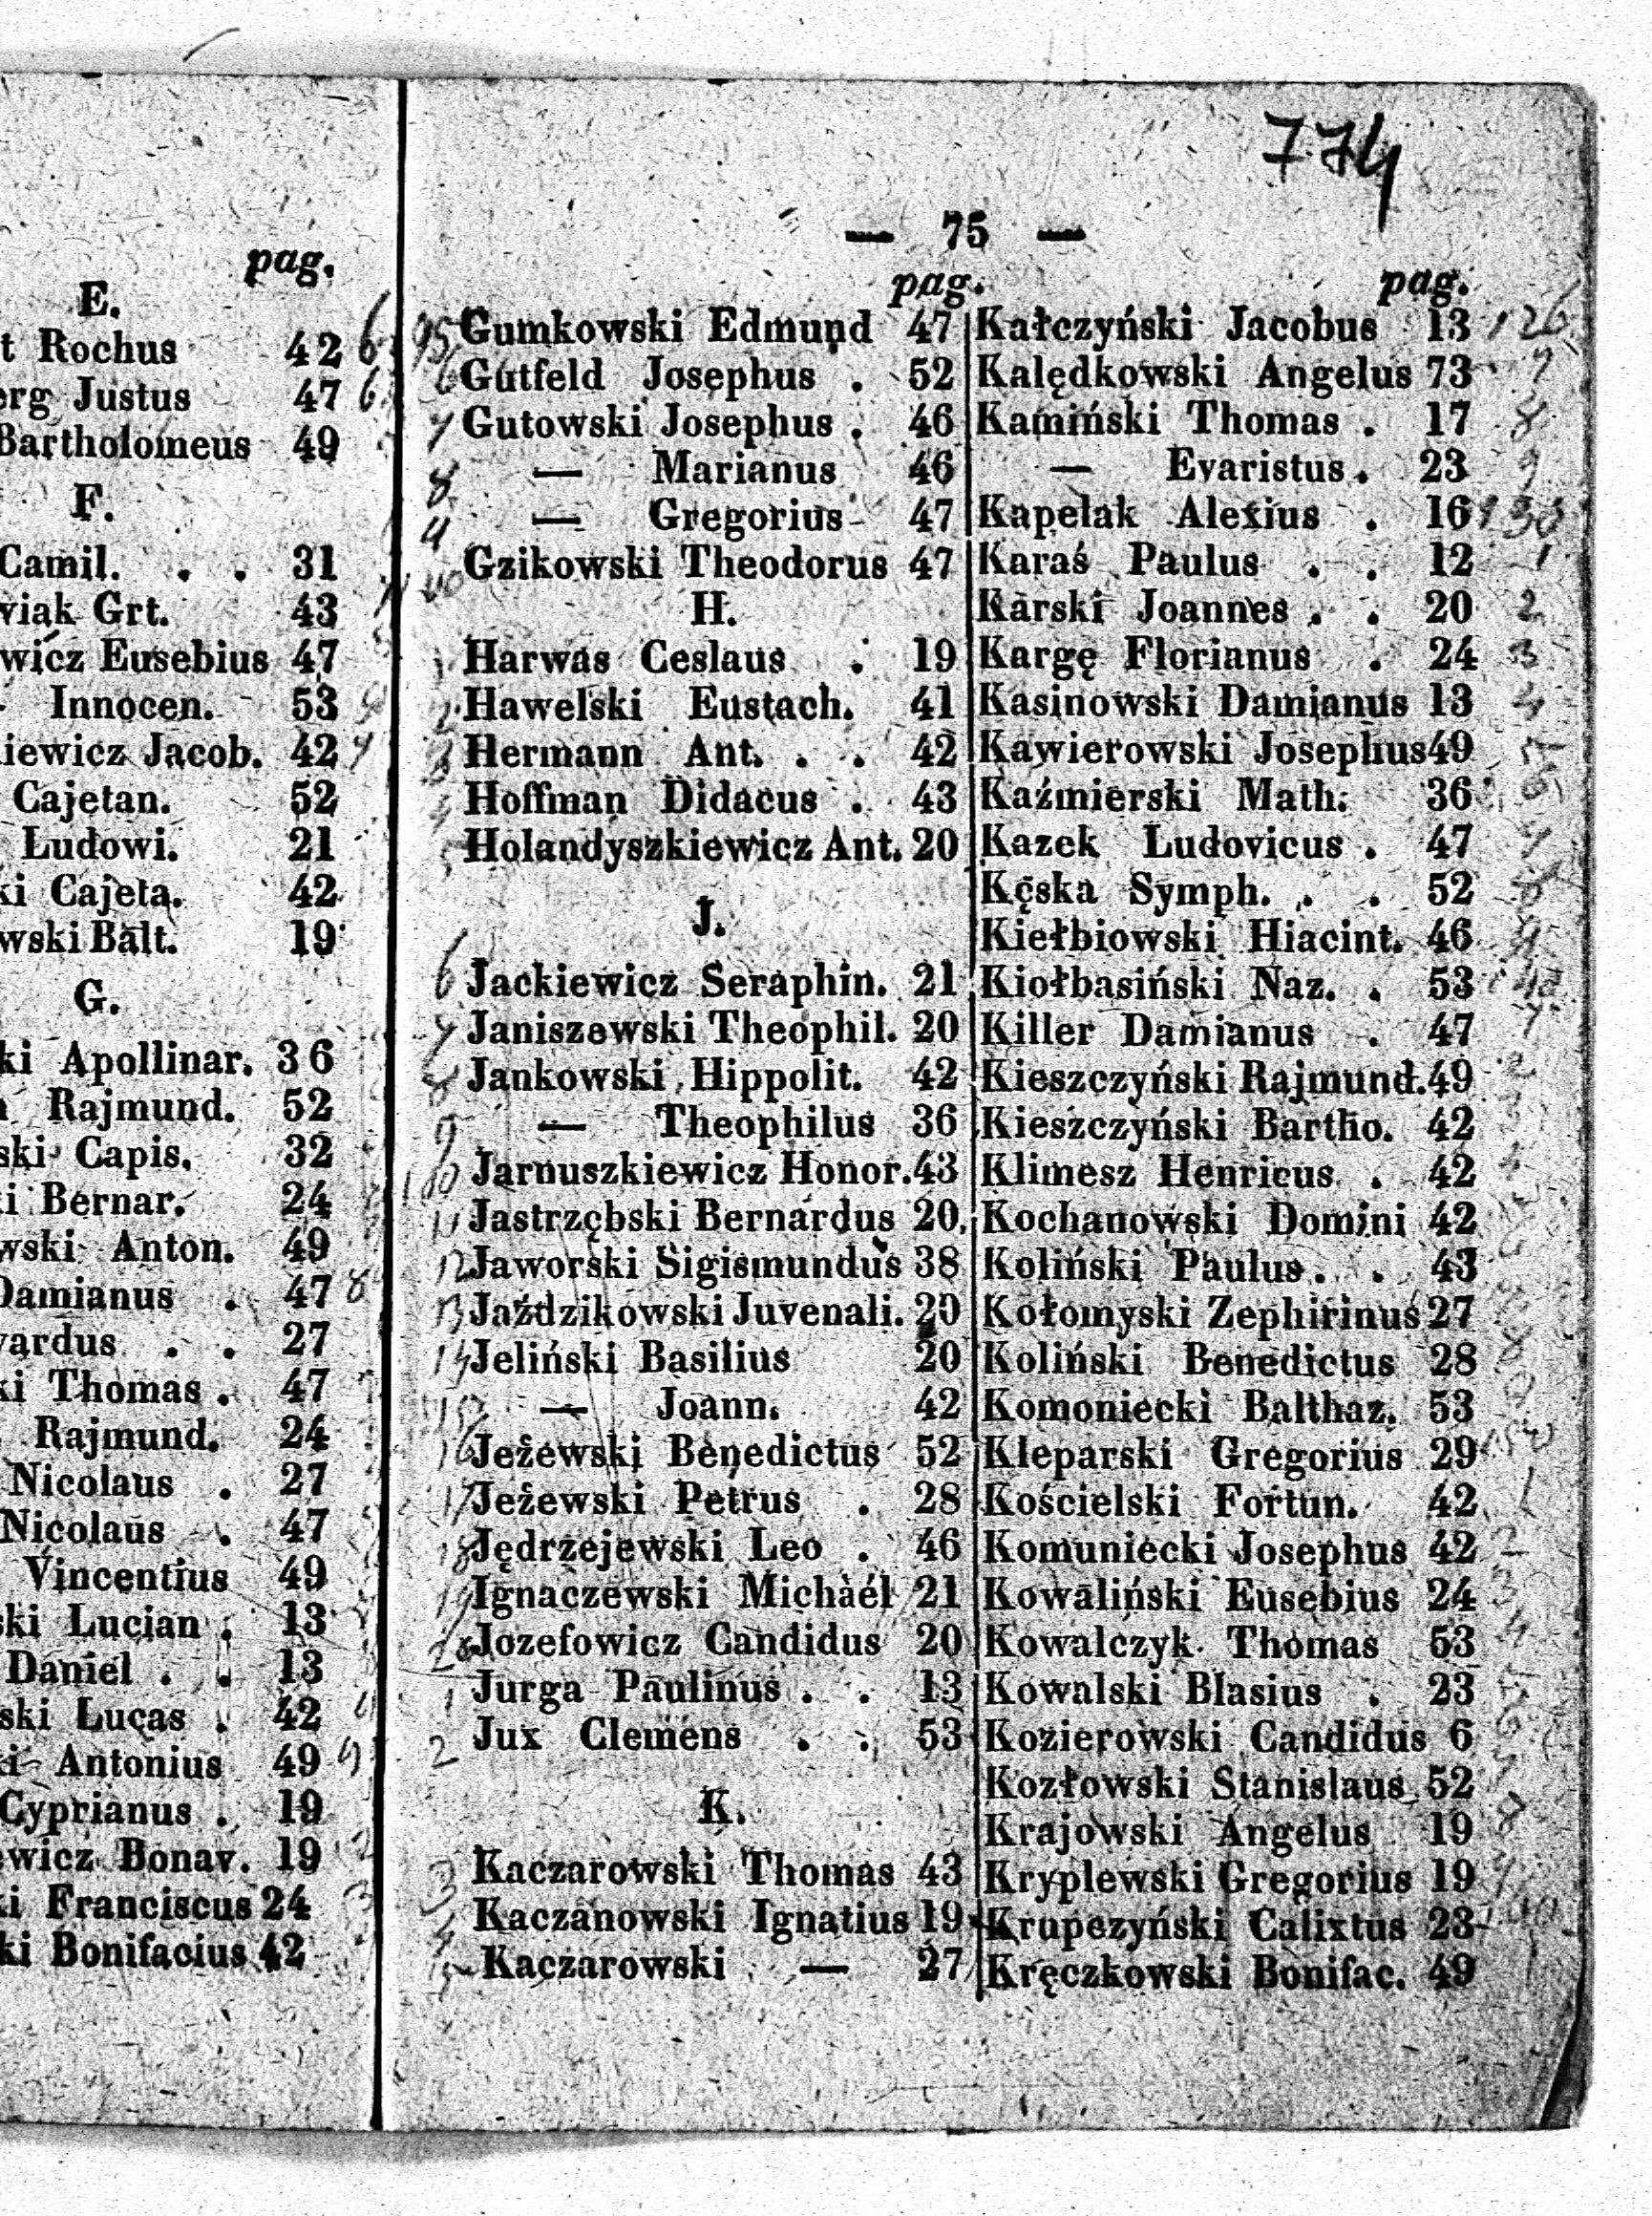 pag.
E.
t Rochus 42
erg Justus 47
Bartholomeus 49
F.
Camil. . . 31
wiak Grt. 43
wicz Eusebius 47
Innocen. 53
kiewicz Jacob. 42
Cajetan. 52
Ludowi. 21
ki Cajeta. 42
wski Balt. 19
G.
ki Apollinar. 36
Rajmund. 52
ski Capis. 32
ki Bernar. 24
wski Anton. 49
Damianus . 47
vardus . . 27
ki Thomas . 47
Rajmund. 24
Nicolaus . 27
Nicolaus . 47
Vincentius 49
ski Lucian . 13
Daniel . . 13
ski Lucas . 42
ki Antonius 49
Cyprianus . 19
ewicz Bonav. 19
ki Franciscus 24
ki Bonifacius 42
774
— 75 —
pag.
Gumkowski Edmund 47
Gutfeld Josephus . 52
Gutowski Josephus . 46
— Marianus 46
— Gregorius 47
Gzikowski Theodorus 47
H.
Harwas Ceslaus . 19
Hawelski Eustach. 41
Hermann Ant. . . 42
Hoffman Didacus . 43
Holandyszkiewicz Ant. 20
J.
Jackiewicz Seraphin. 21
Janiszewski Theophil. 20
Jankowski Hippolit. 42
— Theophilus 36
Jarnuszkiewicz Honor. 43
Jastrzębski Bernardus 20
Jaworski Sigismundus 38
Jaździkowski Juvenali. 20
Jeliński Basilius 20
— Joann. 42
Jeżewski Benedictus 52
Jeżewski Petrus . 28
Jędrzejewski Leo . 46
Ignaczewski Michaél 21
Jozefowicz Candidus 20
Jurga Paulinus . . 13
Jux Clemens . . 53
K.
Kaczarowski Thomas 43
Kaczanowski Ignatius 19
Kaczarowski — 27
pag.
Kałczyński Jacobus 13
Kalędkowski Angelus 73
Kamiński Thomas . 17
— Evaristus . 23
Kapelak Alexius . 16
Karaś Paulus . . 12
Karski Joannes . . 20
Kargę Florianus . 24
Kasinowski Damianus 13
Kawierowski Josephus 49
Kaźmierski Math. 36
Kazek Ludovicus . 47
Kęska Symph. . . 52
Kiełbiowski Hiacint. 46
Kiołbasiński Naz. . 53
Killer Damianus . 47
Kieszczyński Rajmund. 49
Kieszczyński Bartho. 42
Klimesz Henricus . 42
Kochanowski Domini 42
Koliński Paulus . . 43
Kołomyski Zephirinus 27
Koliński Benedictus 28
Komoniecki Balthaz. 53
Kleparski Gregorius 29
Kościelski Fortun. 42
Komuniecki Josephus 42
Kowaliński Eusebius 24
Kowalczyk Thomas 53
Kowalski Blasius . 23
Kozierowski Candidus 6
Kozłowski Stanislaus 52
Krajowski Angelus 19
Kryplewski Gregorius 19
Krupczyński Calixtus 23
Kręczkowski Bonifac. 49